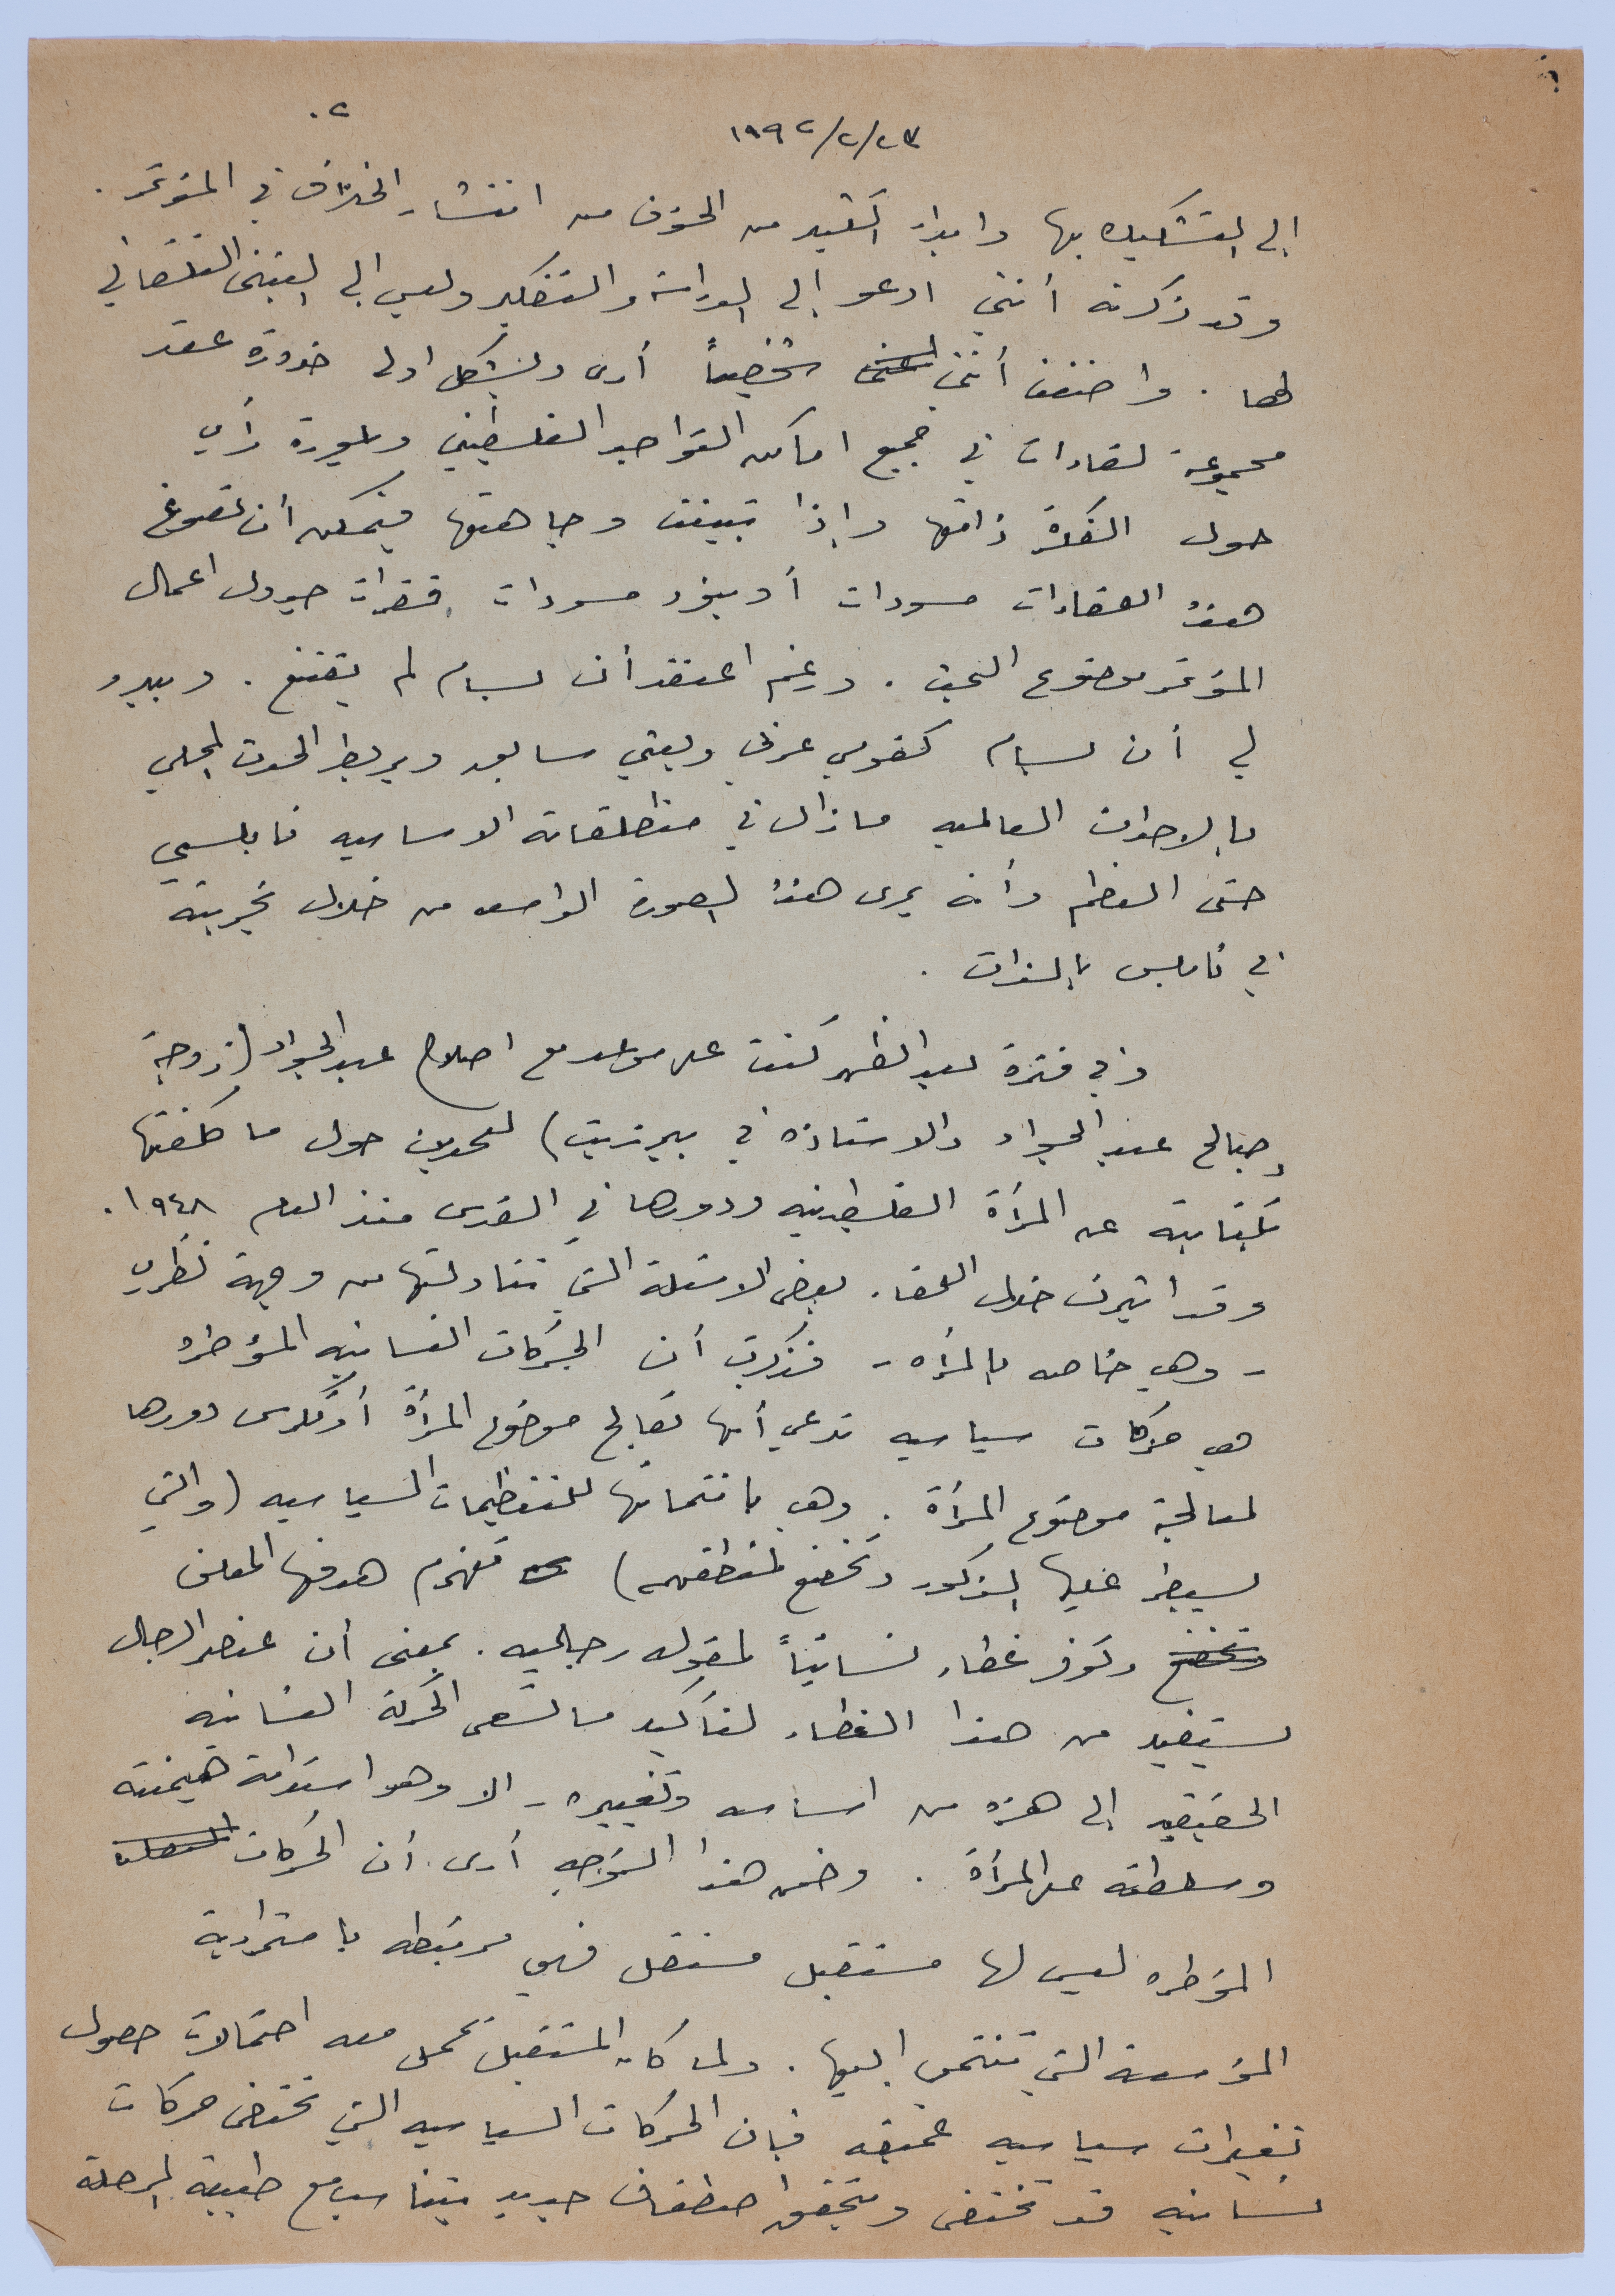 ١٩٩٢/٢/٢٣
٢.
إلى التشكيك بها وابداء الكثير من الخوف من انتشار الخلاف في المؤتمر.
وقد ذكرت أنني ادعو إلى الدراسة والتفكير وليس إلى التبني التلقائي
لها. واضفت أنني شخصياً أرى وبشكل اولي ضرورة عقد
مجموعة لقاءات في جميع اماكن التواجد الفلسطيني وبلورة رأي
حول الفكرة ذاتها وإذا تبينت وجاهتها فيمكن أن تصوغ
هذه اللقاءات مسودات أو بنود مسودات فقرات جدول اعمال
المؤتمر موضوع البحث. ورغم اعتقد أن بسام لم يقتنع. ويبدو
لي أن بسام كقومي عرفي وبعثي سابق ويربط الحدث المحلي
بالاحداث العالميه مازال في منطلقاته الاساسيه نابلسي
حتى العظم وأنه يرى هذه الصورة الواسعه من خلال تجربته
في نابلس بالذات.
وفي فترة بعد الظهر كنت على موعد مع اصلاح عبد الجواد (زوجة
صالح عبد الجواد والاستاذه في بيرزيت) للحديث حول ما كلفتها
بكتابته عن المرأة الفلسطينيه ودورها في القدس منذ العام ١٩٤٨.
وقد اثيرت خلال اللقاء بعض الاسئلة التي تناولتها من وجهة نظري
- وهي خاصه بالمرأه - فذكرت أن الحركات النسائيه المؤطره
هي حركات سياسيه تدعي أنها تعالج موضوع المرأة أو تكرس دورها
لمعالجة موضوع المرأة. وهي بانتمائها للتنظيمات السياسيه (والتي
يسيطر عليها الذكور وتخضع لمنطقهم) تهزم هدفها المعلن
وتخضع وتوفر غطاء نسائياً لمقوله رجاليه. بمعنى أن عنصر الرجال
يستفيد من هذا الغطاء لتأكيد ما تسعى الحركة النسائيه
الحقيقيه إلى هزه من اساسه وتغييره - الا وهو استدامة هيمنته
وسلطته على المرأة. وضمن هذا التوجه أرى أن الحركات
المؤطره ليس لها مستقبل مستقل فهي مرتبطه باستمرارية
المؤسسة التي تنتمي اليها. ولما كان المستقبل يحمل معه احتمالات حصول
تغيرات سياسيه عميقه فبأن الحركات السياسيه التي تحتضن حركات
نسائيه قد تختفي ويتحقق اصطفاف جديد يتناسب مع طبيعة المرحلة